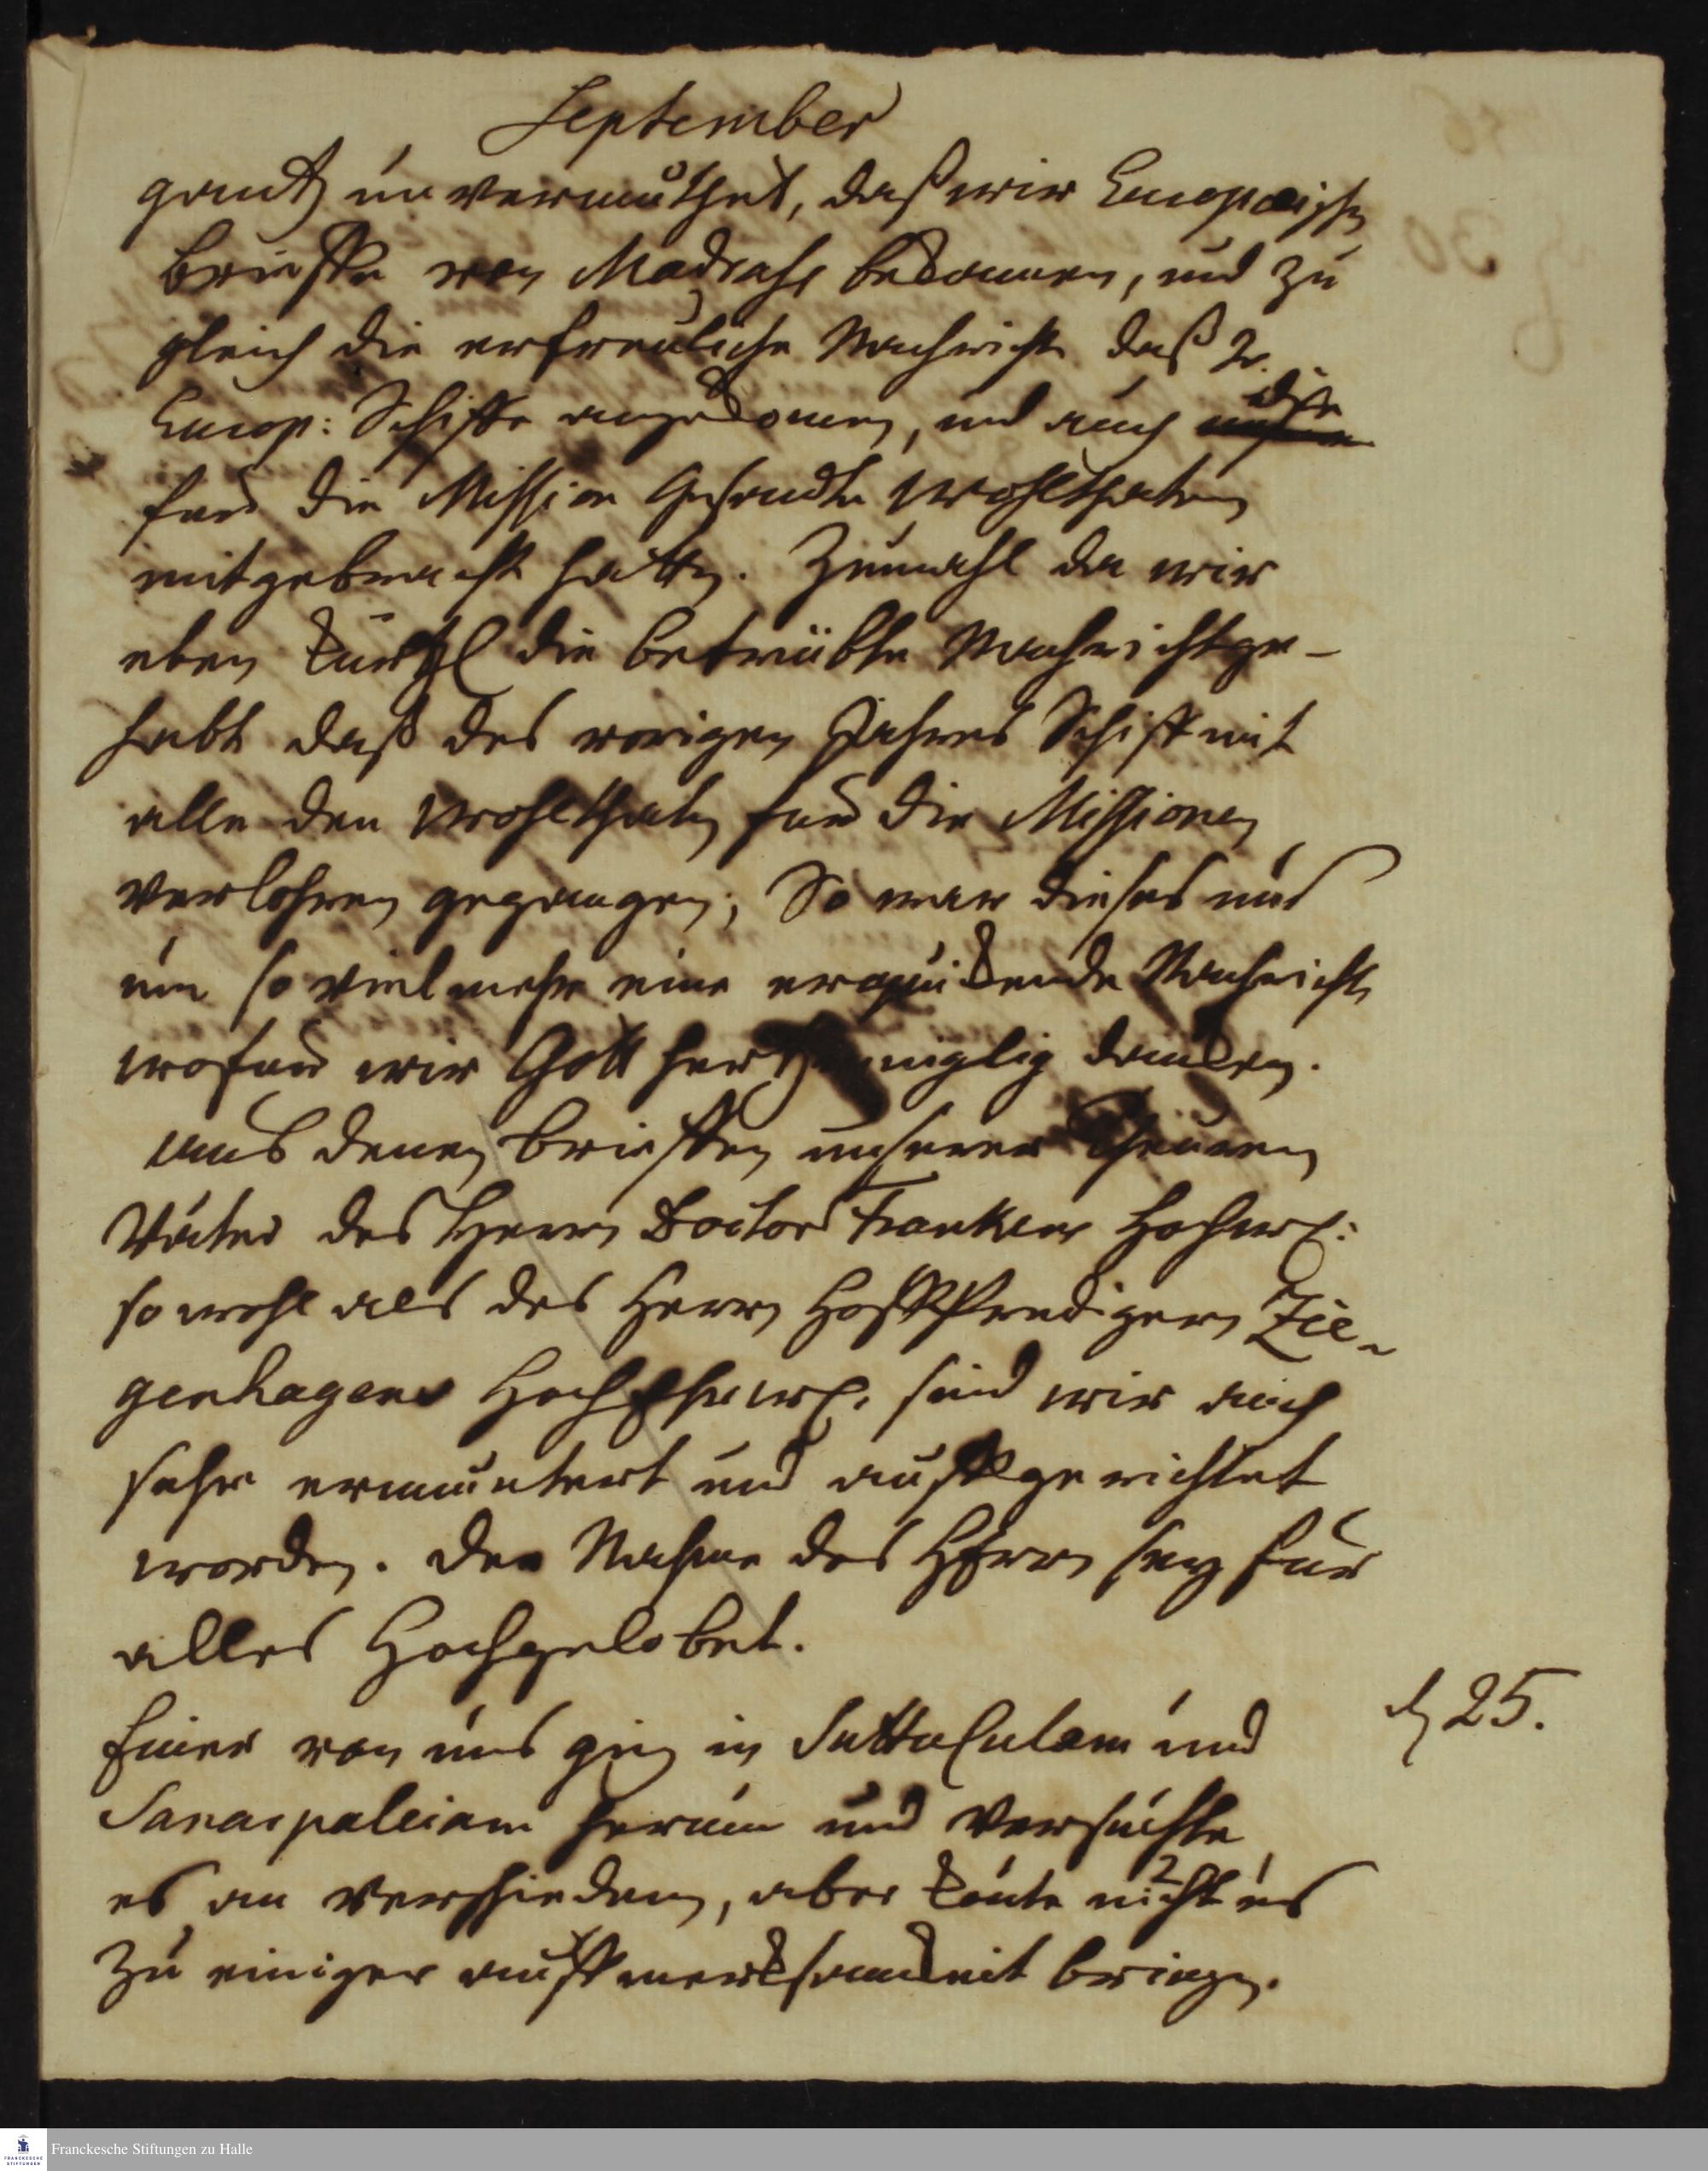 September
gantz unvermuthet, daß wir Europæische
Brieffe von Madrass bekomen, und zu
gleich die erfreuliche Nachricht daß 2.
Europ: Schiffe angekomen, und auch die
für die Mission Gesandte Wohlthaten
mitgebracht hätten. Zumahl da wir
eben kürtzl die betrübte Nachricht ge-
habt daß des vorigen Jahres Schiff mit
alle den Wohlthaten für die Missionen
verlohren gegangen; So war dieses uns
um so viel mehr eine erquikende Nachricht,
wofür wir Gott hertzinniglig danken.
Aus denen Brieffen unserer Theuren
Väter des Herrn Doctors Franken Hochw:
so wohl als des Herrn HoffPredigers Zie-
genhagens HochEhrw. sind wir auch
sehr ermuntert und auffgerichtet
worden. Der Nahme des HErrn sey für
alles Hochgelobet.
d 25.
Einer von uns ging in Suttuculam und
Sanarpaleiam herum und Versuchte
es an verschiedenen, aber konte nicht es
zu einiger auffmerksamkeit bringen.
Franckesche Stiftungen zu Halle